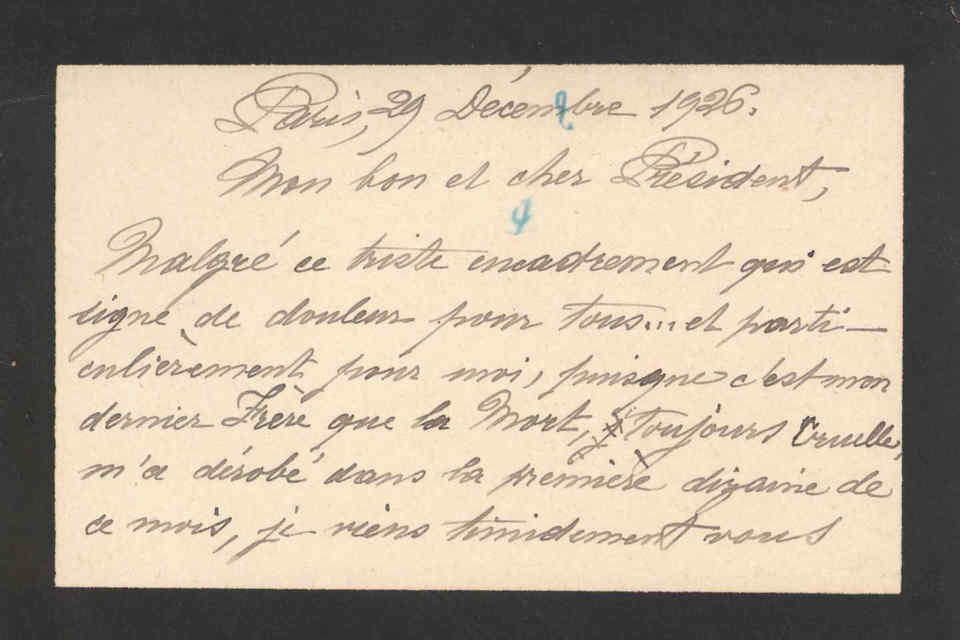 Paris, 29 Décembre 1926.
Mon bon et cher Président,
Malgré ce triste encadrement qui est
signe de douleur pour tous... et parti-
culièrement pour moi, puisque c'est mon
dernier Frère que la Mort, toujours Cruelle,
m'a dérobé dans la première dizaine de
ce mois, je viens timidement vous